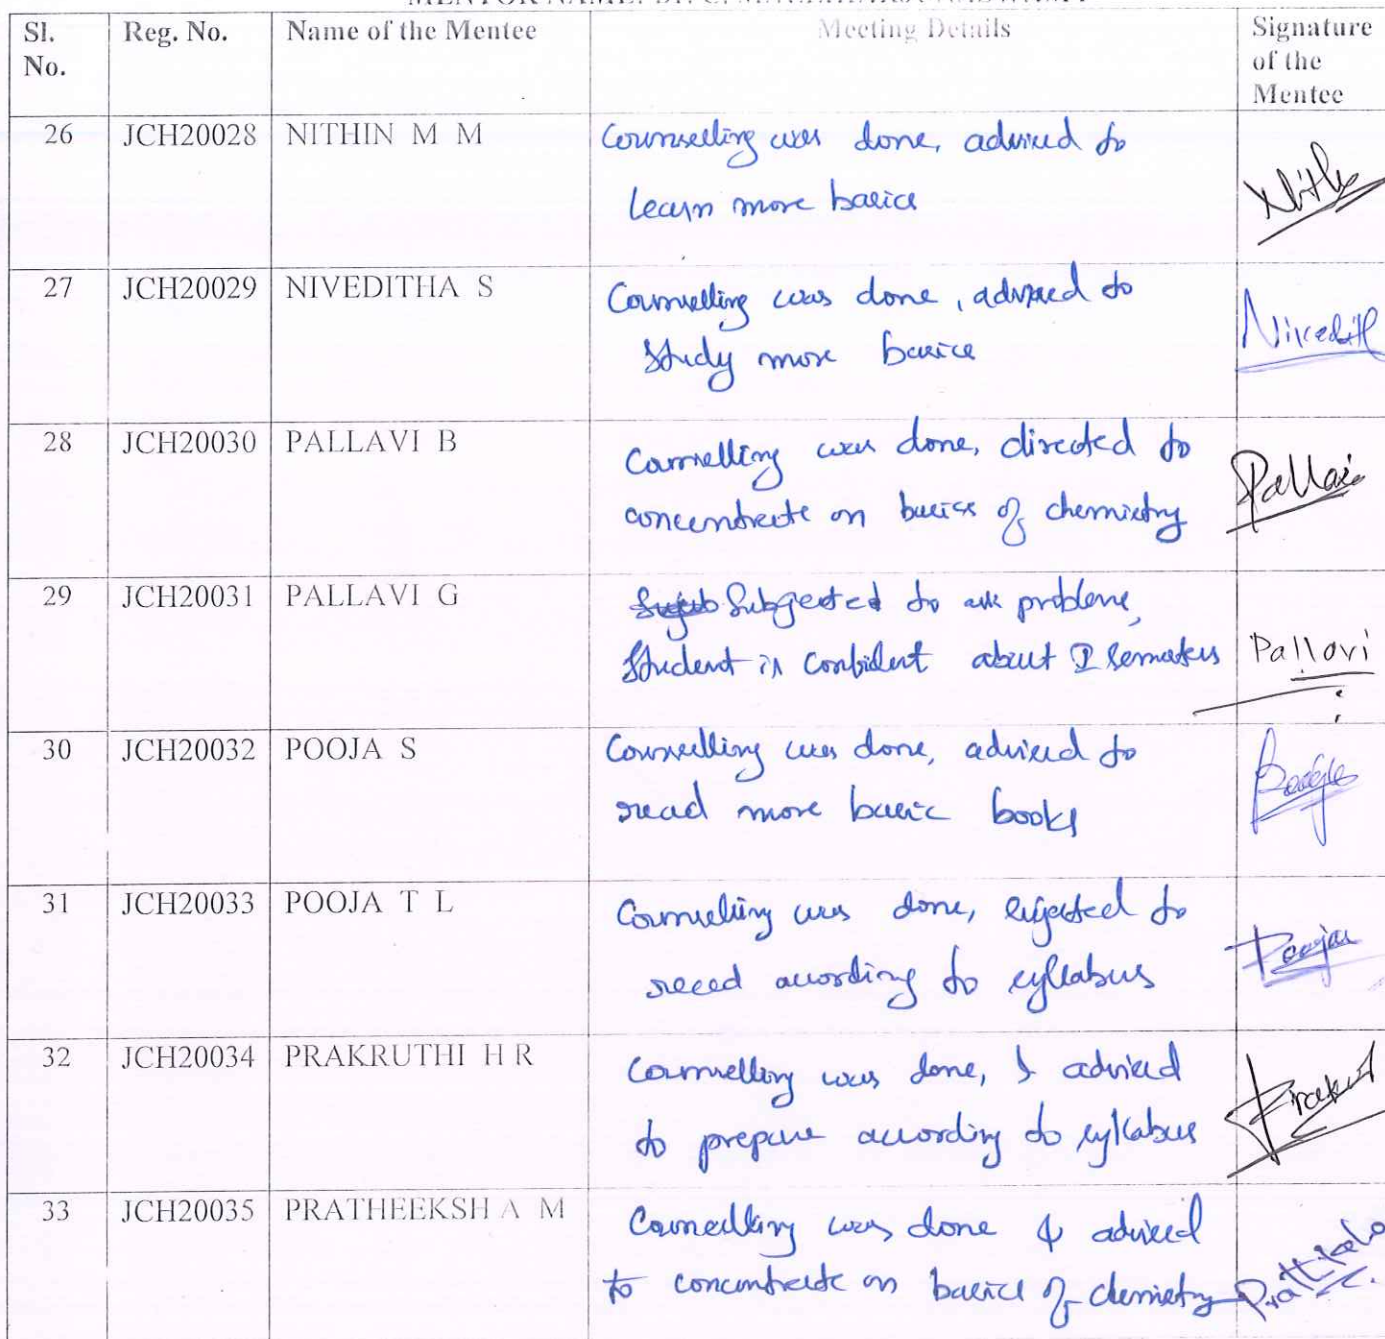 MENTOR NAME: Dr. C.
Sl. No. Reg. No. Name of the Mentee Meeting Details Signature of the Mentee
26 JCH20028 NITHIN M M Counselling was done, advised to
learn more basics
Nith
27 JCH20029 NIVEDITHA S Counselling was done, advised to
study more basics
Nivedith
28 JCH20030 PALLAVI B Counselling was done, directed to
concentrate on basics of chemistry
Pallavi
29 JCH20031 PALLAVI G Subgested to ask problems,
Student is confident about I semesters
Pallavi
30 JCH20032 POOJA S Counselling was done, advised to
read more basic books
Pooja
31 JCH20033 POOJA T L Counselling was done, sujested to
read according to syllabus
Pooja
32 JCH20034 PRAKRUTHI H R Counselling was done, & advised
to prepare according to syllabus
Prakrut
33 JCH20035 PRATHEEKSHA M Counselling was done & advised
to concentrate on basics of chemistry